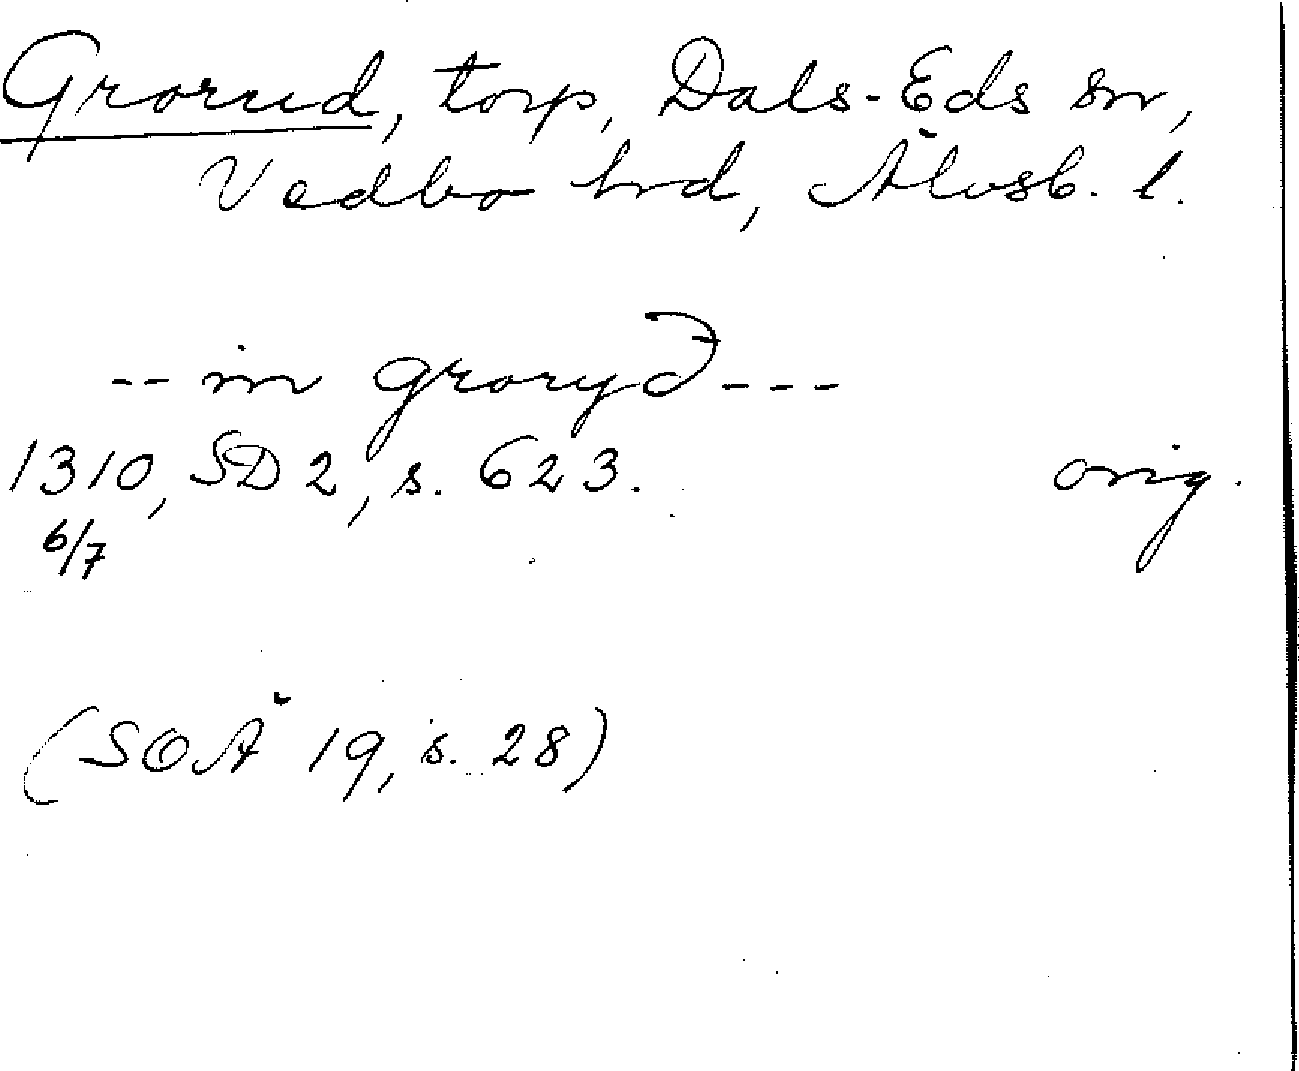 Grorud, torp, Dals-Eds sn,
Vedbo hrd, Älvsb. l.
-- in groryð ---
1310, SD 2, s. 623. orig.
6/7
(SOÄ 19, s. 28)